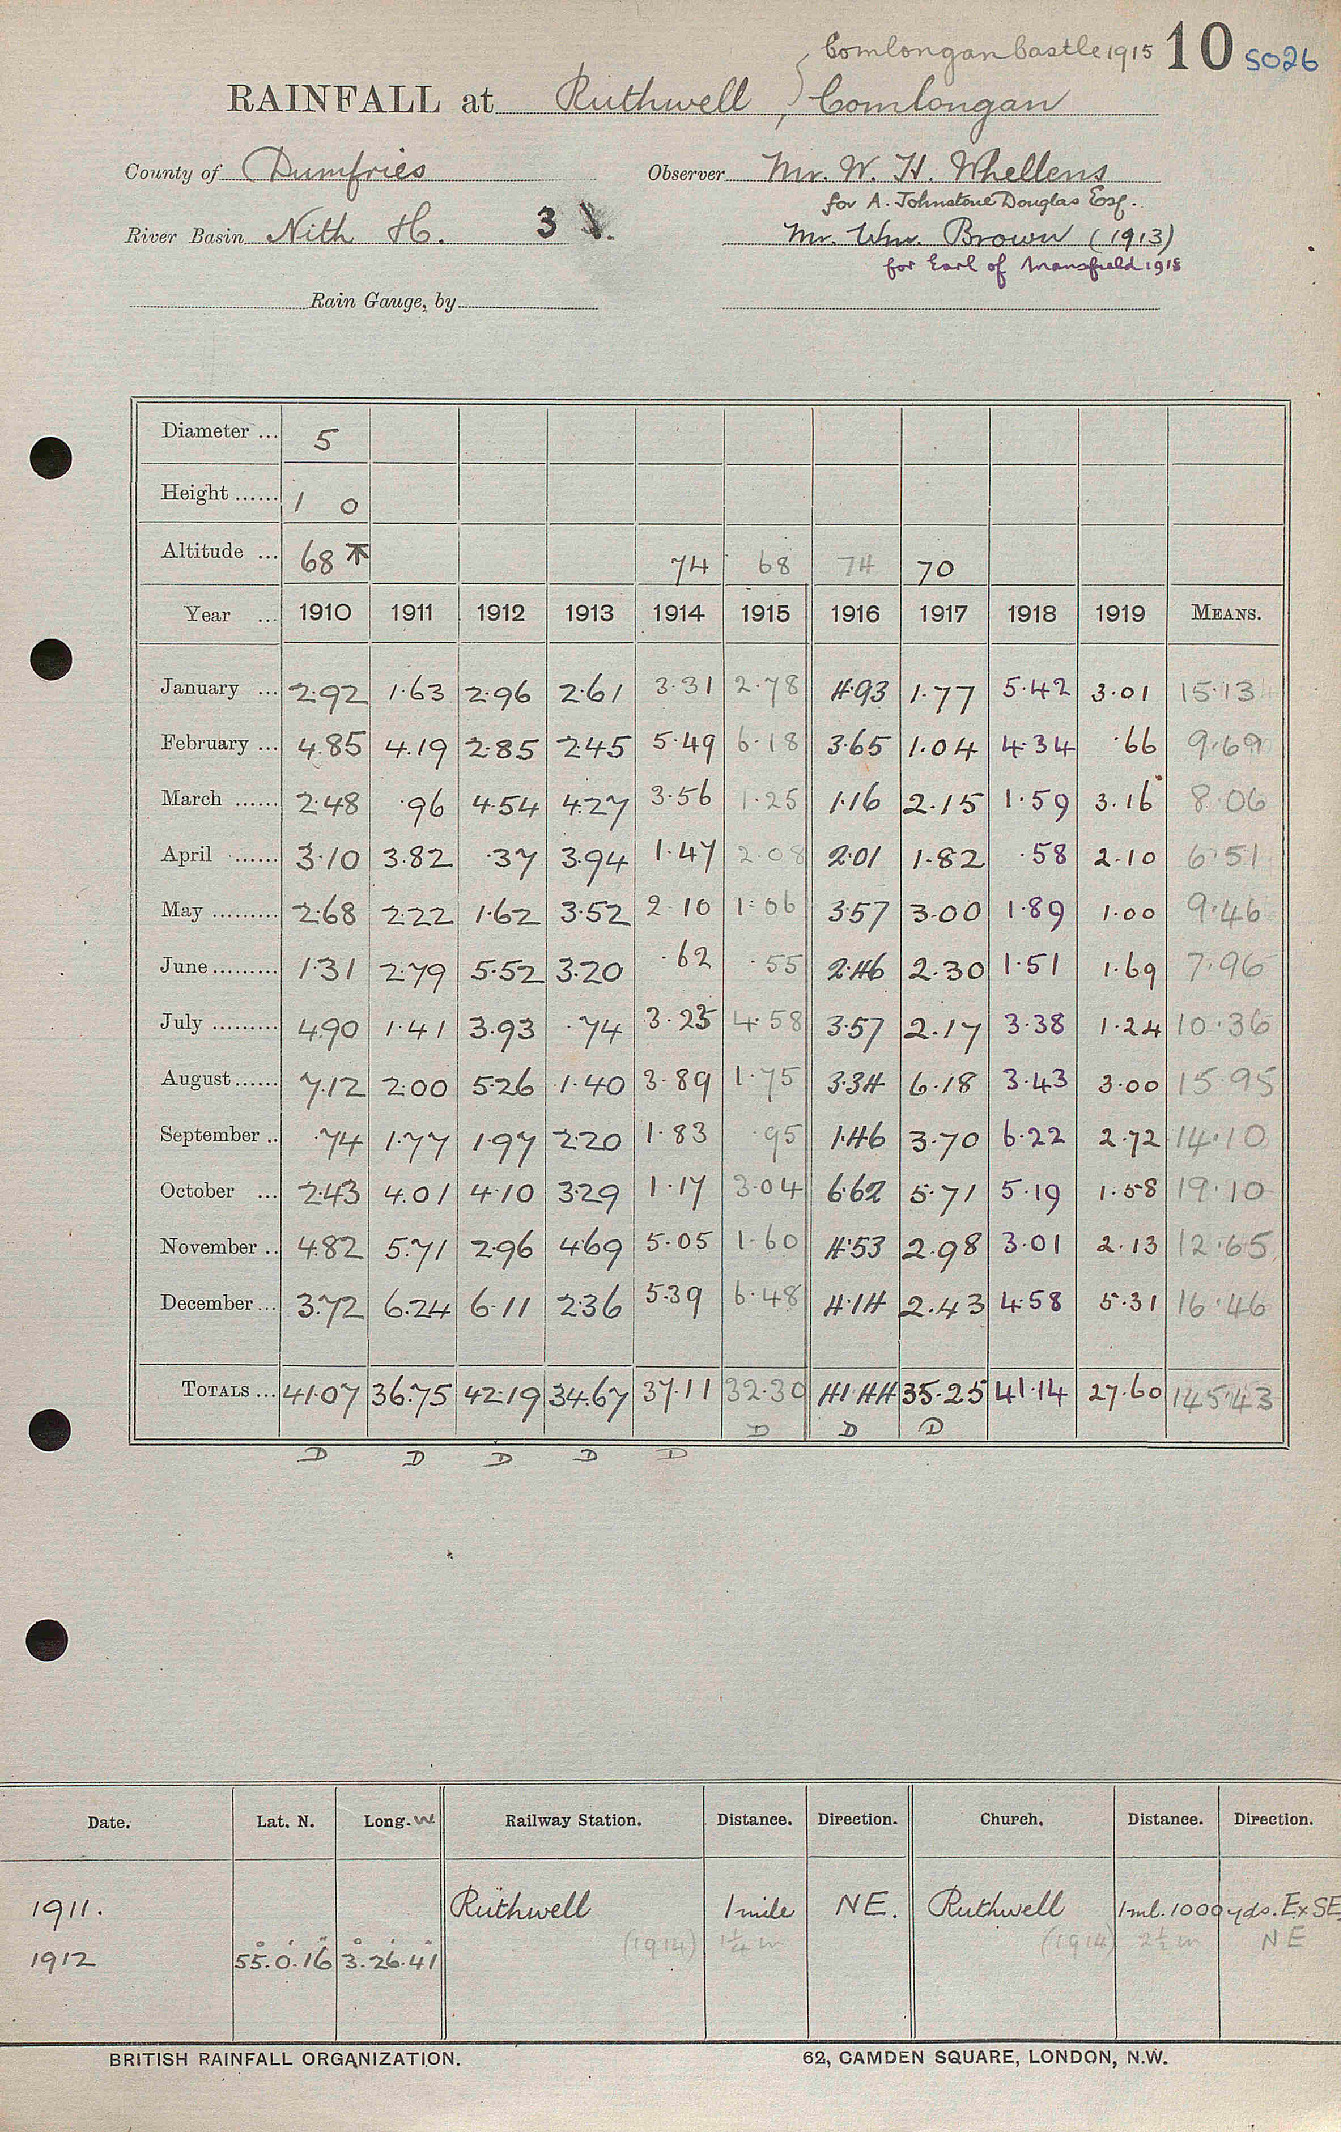 Comlongan Castle 1915 10 5026
RAINFALL at Ruthwell, Comlongan
County of Dumfries Observer Mr. W. H. Whellens
for A. Johnstone Douglas Esq.
River Basin Nith H. 3 Mr. Wm. Brown (1913)
for Earl of Mansfield 1918
Rain Gauge, by
Diameter ... 5
Height ...... 1 0
Altitude ... 68 74 68 74 70
Year ... 1910 1911 1912 1913 1914 1915 1916 1917 1918 1919 MEANS.
January ... 2.92 1.63 2.96 2.61 3.31 2.78 4.93 1.77 5.42 3.01 15.13
February ... 4.85 4.19 2.85 2.45 5.49 6.18 3.65 1.04 4.34 .66 9.69
March ...... 2.48 .96 4.54 4.27 3.56 1.25 1.16 2.15 1.59 3.16 8.06
April ...... 3.10 3.82 .37 3.94 1.47 2.08 2.01 1.82 .58 2.10 6.51
May ......... 2.68 2.22 1.62 3.52 2.10 1.06 3.57 3.00 1.89 1.00 9.46
June ......... 1.31 2.79 5.52 3.20 .62 .55 2.46 2.30 1.51 1.69 7.96
July ......... 4.90 1.41 3.93 .74 3.23 4.58 3.57 2.17 3.38 1.24 10.36
August ...... 7.12 2.00 5.26 1.40 3.89 1.75 3.34 6.18 3.43 3.00 15.95
September .. .74 1.77 1.97 2.20 1.83 .95 1.46 3.70 6.22 2.72 14.10
October ... 2.43 4.01 4.10 3.29 1.17 3.04 6.62 5.71 5.19 1.58 19.10
November .. 4.82 5.71 2.96 4.69 5.05 1.60 4.53 2.98 3.01 2.13 12.65
December ... 3.72 6.24 6.11 2.36 5.39 6.48 4.14 2.43 4.58 5.31 16.46
TOTALS ... 41.07 36.75 42.19 34.67 37.11 32.30 41.44 35.25 41.14 27.60 145.43
D D D
D D D D D
Date. Lat. N. Long. W Railway Station. Distance. Direction. Church. Distance. Direction.
1911. Ruthwell 1 mile NE. Ruthwell 1 ml. 1000 yds. E x SE
(1914) 1¼ m (1914) 2½ m NE
1912 55°.0'.16" 3°.26'.41
BRITISH RAINFALL ORGANIZATION. 62, CAMDEN SQUARE, LONDON, N.W.